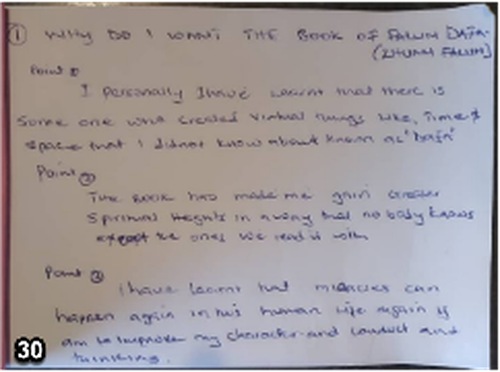 ① WHY DO I WANT THE BOOK OF FALUN DAFA.
(ZHUAN FALUN)
Point ①
I personally I have learnt that there is
some one who created virtual things like, Time &
space that I didnot know about known as "Dafa"
Point ②
The Book has made me gain Greater
Spiritual Heights in a way that no body knows
except the ones we read it with
Point ③
I have learnt that miracles can
happen again in this human life again if
am to improve my character and conduct and
thinking.
30